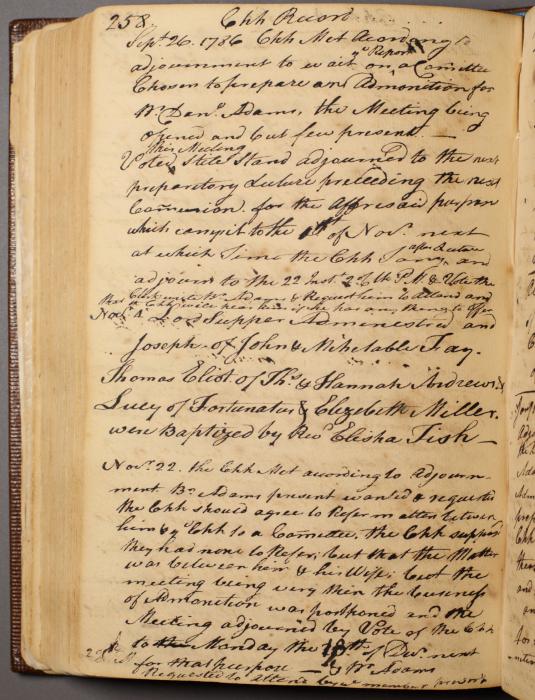 258. Chh Record
Sept. 26. 1786 Chh Met Acordang to
adjournment to wait on ye Report a Comittee
Chosen to prepare an Admonition for
Br. Danl. Adams, the Meeting being
Opened and but few present —
Voted this Meeting Stand adjourned to the next
preparitory Lecture preceeding the next
Communion. for the Affresaid purpose
which carry it to the of Novr. next
at which Time the Chh after Lecture and
adjourn to the 22 Inst. 2 oClk P.M. & Vote the
Clerk Br. Adams & Request him to Attend and
if he has any thing to offer
Novr. Lords Supper Administred and
Joseph of John & Mihetable Fay.
Thomas Eliot of Thos. & Hannah Andrews &
Lucy of Fortunatus & Elizebeth Miller.
were Baptized by Revd. Elisha Fish —
Novr. 22. the Chh Met acording to Adjourn-
ment Br. Adams present wanted & requested
the Chh should agree to Refer matters between
him & ye Chh to a Comittee, the Chh supposed
they had none to Refer; but that the Matter
was between him & his Wife; but the
meeting being very thin the buseness
of Admonition was postponed and the
Meeting adjourned by Vote of the Chh
to Monday the of Decr. next
for that purpose — & Br. Adams
Requested to attend by a member